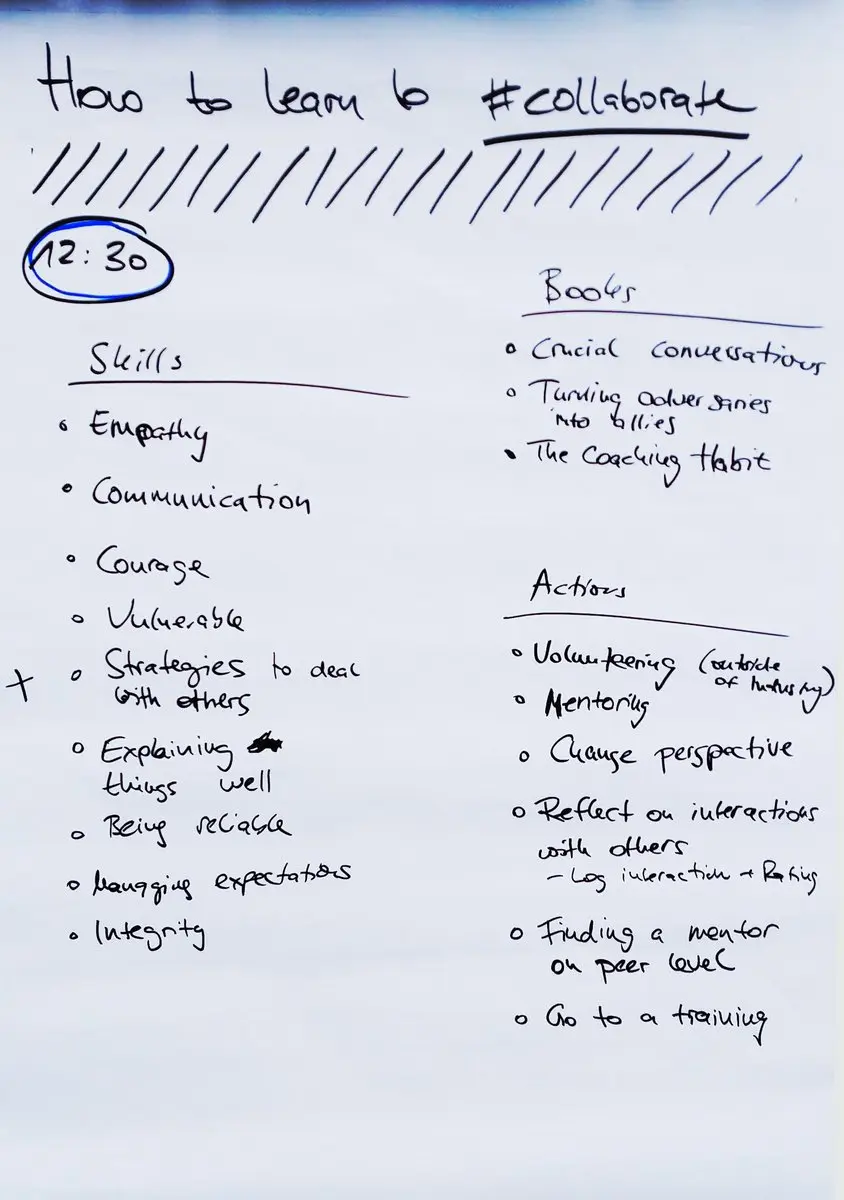 How to learn to #collaborate
12:30
Skills
• Empathy
• Communication
• Courage
• Vulnerable
+ • Strategies to deal
with others
• Explaining
things well
• Being reliable
• Managing expectations
• Integrity
Books
• Crucial conversations
• Turning adversaries
into allies
• The Coaching Habit
Actions
• Volunteering (outside
of industry)
• Mentoring
• Change perspective
• Reflect on interactions
with others
- Log interaction + Rating
• Finding a mentor
on peer level
• Go to a training